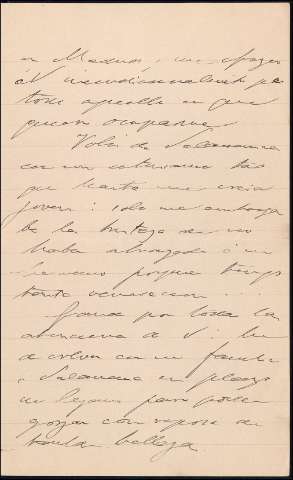 en Madrid, me ofrezco
á V incondicionalmente pa
todo aquello en que
quieran ocuparme
Volví de Salamanca
con un entusiasmo tal
que hasta me creía
joven: solo me embarga
ba la tristeza de no
haber abrazado á un
hermano porque tengo
tanta veneracion...
gracias por todas las
atenciones de V. he
de volver con mi familia
a Salamanca en plazo
no lejano para poder
gozar con reposo de
tanta belleza.